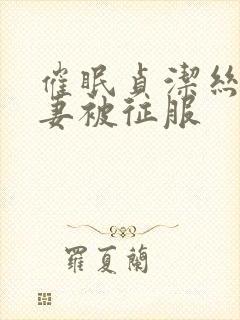 催眠貞潔絲
妻被征服
羅夏蘭